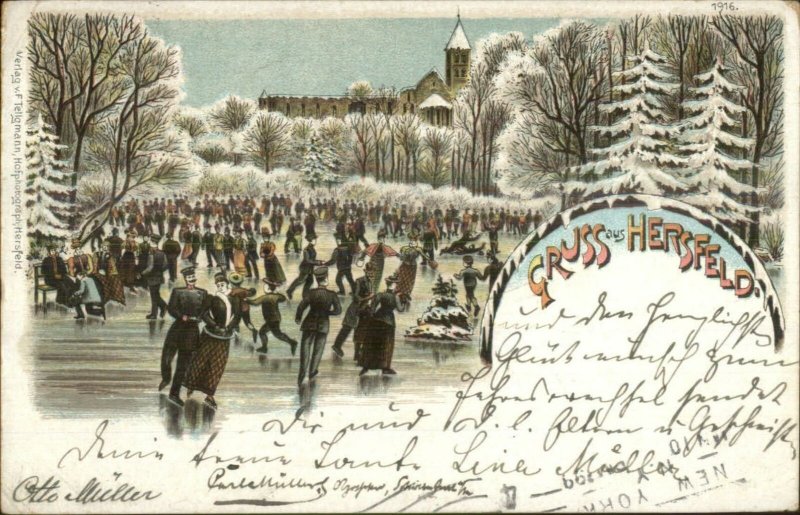 1916.
Verlag v. F. Tellgmann, Hofphotograph, Hersfeld.
GRUSS aus HERSFELD.
und den herzlichsten
Glückwunsch zum
Jahreswechsel sendet
Dir und d. l. Eltern u. Geschwistern
Deine treue Tante Lina Müller
Otto Müller
NEW YORK